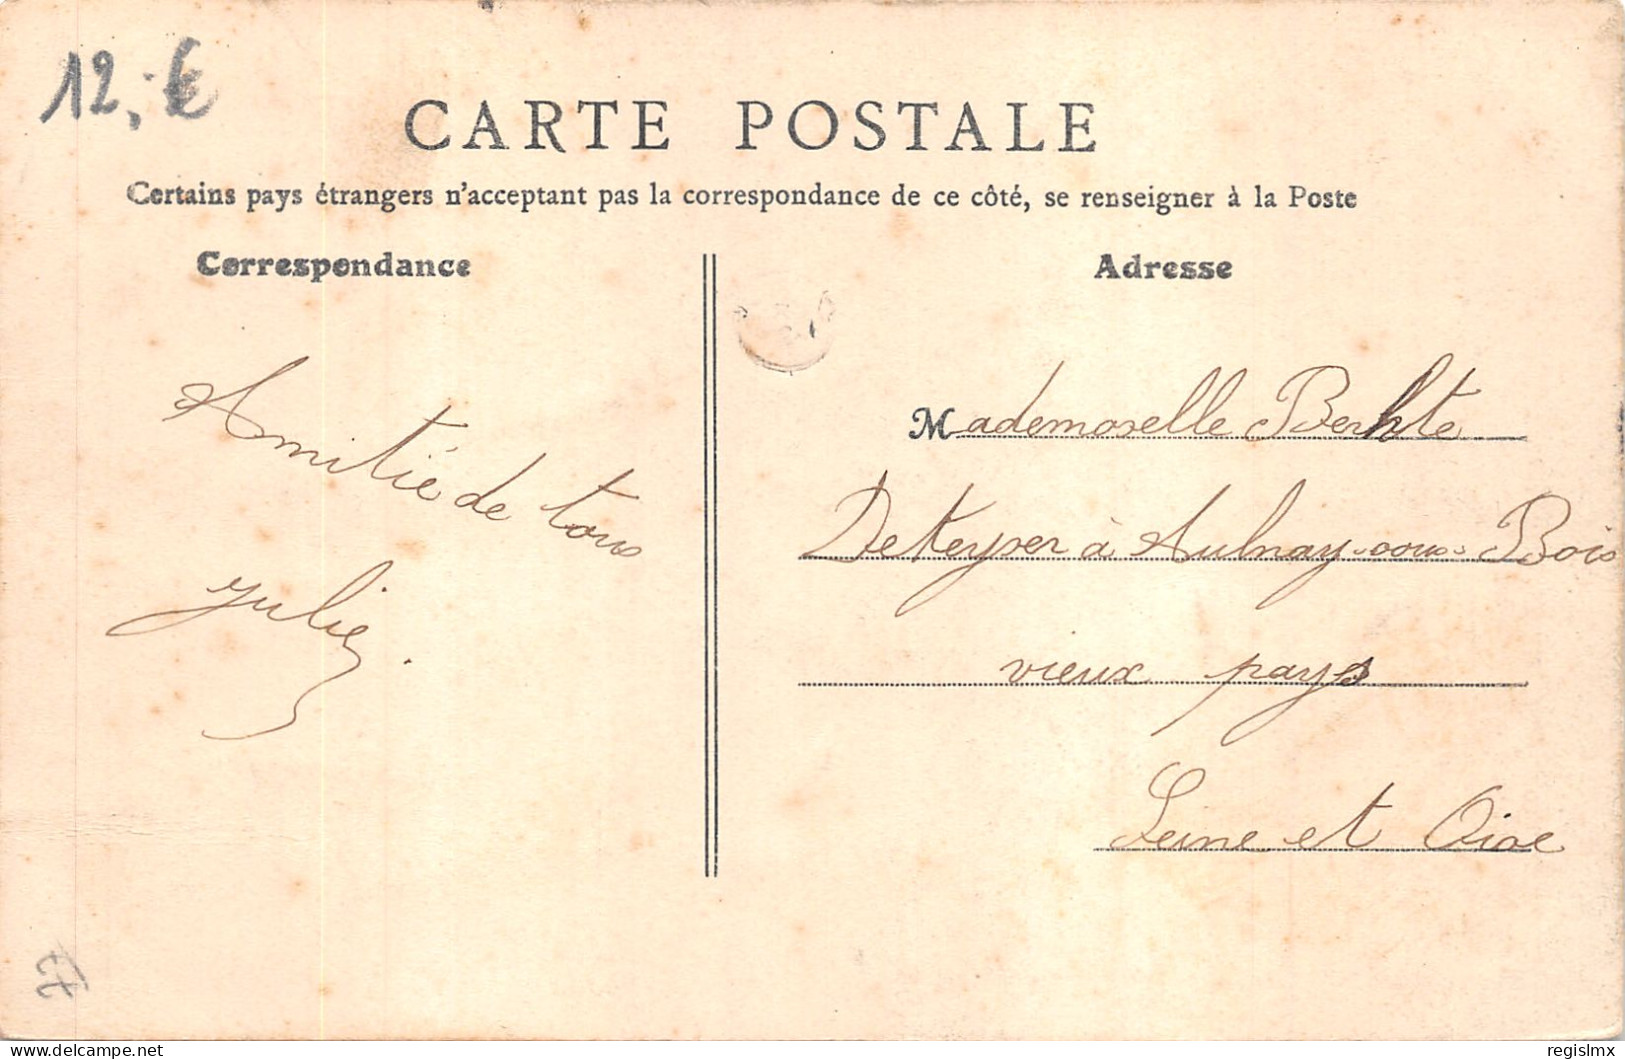 12,-€
CARTE POSTALE
Certains pays étrangers n'acceptant pas la correspondance de ce côté, se renseigner à la Poste
Correspondance
Amitié de tous
Julie
Adresse
Mademoselle Berhte
DeKeyser à Aulnay-sous-Bois
vieux pays
Seine et Oise
www.delcampe.net
regislmx